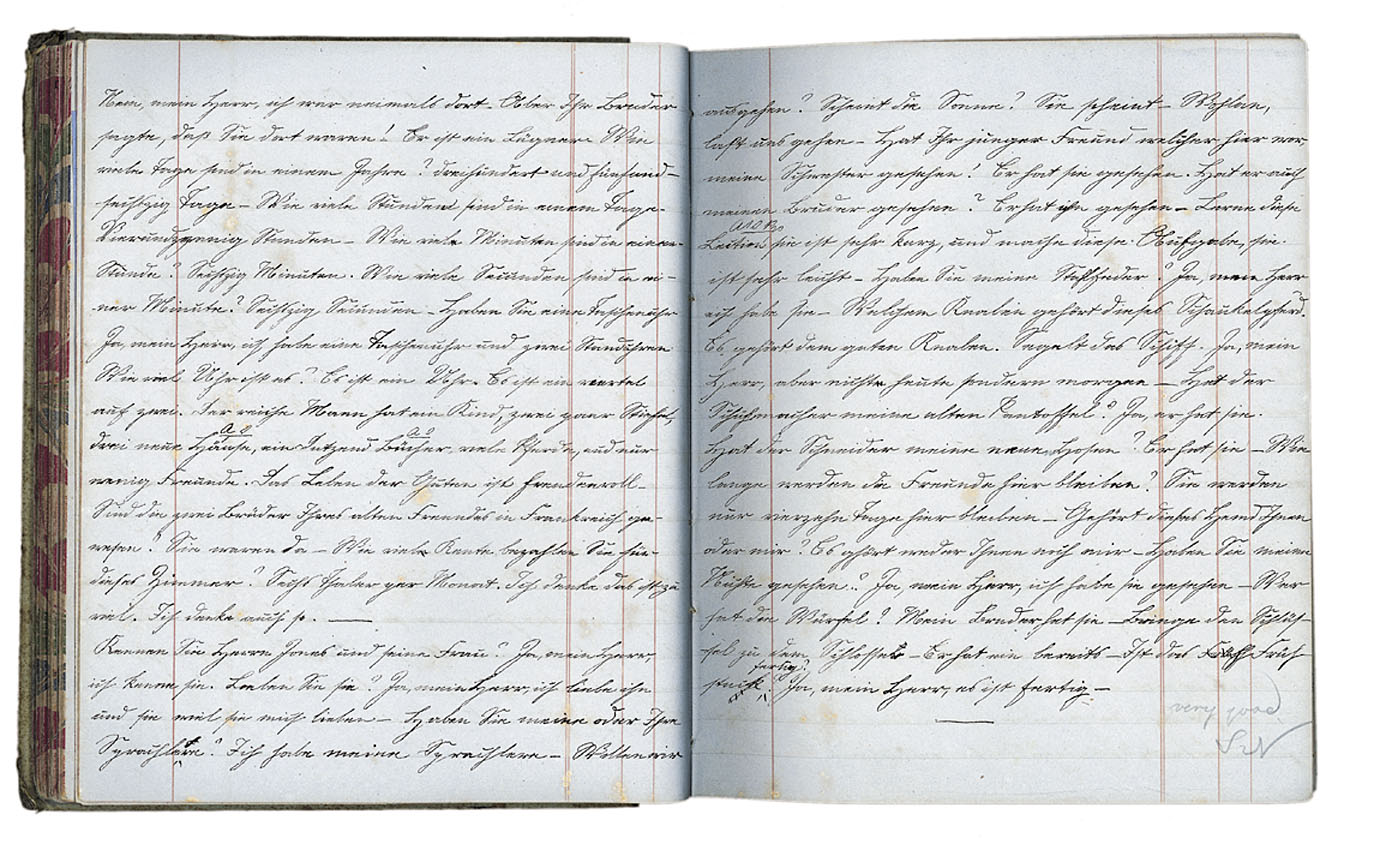 Nein, mein Herr, ich war neimals dort – Aber Ihr Bruder
sagte, daß Sie dort waren! Er ist ein Lügner – Wie
viele Tage sind in einem Jahre? dreihundert und fünfund-
sechszig Tage – Wie viele Stunden sind in einem Tage.
Vierundzwenig Stunden – Wie viele Minuten sind in einer
Stunde? Sechzig Minuten. Wie viele Secunden sind in ei-
ner Minute? Sechszig Secunden – Haben Sie eine Taschenuhr
Ja, mein Herr, ich habe eine Taschenuhr und zwei Standuhren
Wie viel Uhr ist es? Es ist ein Uhr. Es ist ein viertel
auf zwei. Der reiche Mann hat ein Kind, zwei paar Stiefel,
drei neue Häuse, ein Dutzend Bücher, viele Pferde, und nur
wenig Freunde. Das Leben der Guten ist freudenvoll –
Sind die zwei Brüder Ihres alten Freundes in Frankreich ge-
wesen? Sie waren da – Wie viele Rente bezahlen Sie für
dieses Zimmer? Sechs Thaler per Monat. Ich denke das ist zu
viel. Ich denke auch so. —
Kennen Sie Herrn Jones und seine Frau? Ja, mein Herr,
ich kenne sie. Lieben Sie sie? Ja, mein Herr, ich liebe ihn
und sie weil sie mich lieben – Haben Sie meine oder Ihre
Sprachlere? Ich habe meine Sprachlere – Wollen wir
ausgehen? Scheint die Sonne? Sie scheint – Wohlan,
laßt uns gehen – Hat Ihr junger Freund welcher hier war
meine Schwester gesehen? Er hat sie gesehen. Hat er auch
meinen Bruder gesehen? Er hat ihn gesehen – Lerne diese
Lection sie ist sehr kurz, und mache diese Aufgabe, sie
ist sehr leicht – Haben Sie meine Stahlfeder? Ja, mein Herr
ich habe sie – Welchem Knaben gehört dieses Schaukelpferd.
Es gehört dem guten Knaben. Segelt das Schiff. Ja, mein
Herr, aber nicht heute sondern morgen – Hat der
Schuhmacher meine alten Pantoffel? Ja, er hat sie.
Hat der Schneider meine neue Hosen? Er hat sie – Wie
lange werden die Freunde hier bleiben? Sie werden
nur vierzehn Tage hier bleiben – Gehört dieses Hemd Ihnen
oder mir? Es ghört weder Ihnen noch mir – Haben Sie meine
Nichte gesehen? Ja, mein Herr, ich habe sie gesehen – Wer
hat die Würfel? Mein Bruder hat sie – Bringe den Schlüs-
sel zu dem Schlosser – Er hat ein bereits – Ist das Früh-
fertig?
stück. Ja, mein Herr, es ist fertig –
very good.